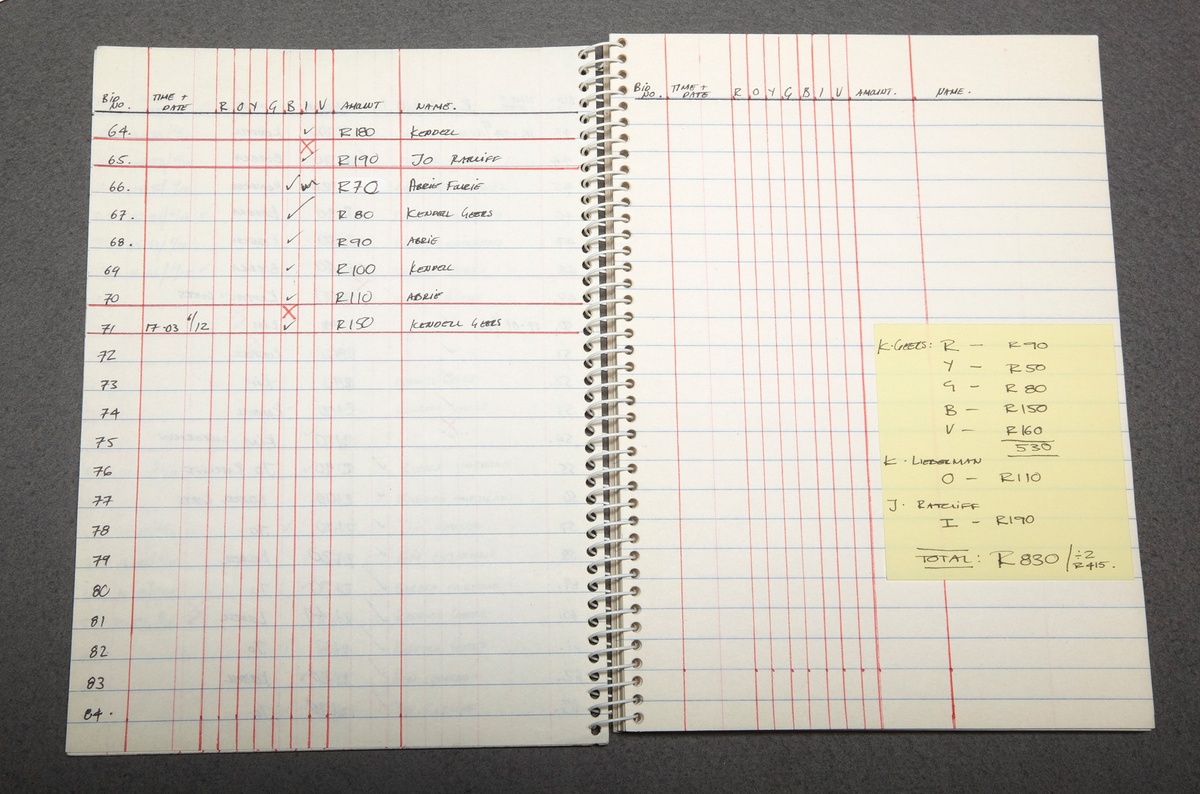 BID NO. TIME + DATE R O Y G B I V AMOUNT NAME.
64. ✓ R180 KENDELL
X
65. ✓ R190 JO RATCLIFF
66. ✓ R70 ABRIE FOURIE
67. ✓ R80 KENDELL GEERS
68. ✓ R90 ABRIE
69 ✓ R100 KENDELL
70 ✓ R110 ABRIE
X
71 17-03 6/12 ✓ R150 KENDELL GEERS
72
73
74
75
76
77
78
79
80
81
82
83
84.
BID NO. TIME + DATE R O Y G B I V AMOUNT. NAME.
K. GEERS: R — R90
Y — R50
G — R80
B — R150
V — R160
530
K. LIEBERMAN
O — R110
J. RATCLIFF
I — R190
TOTAL: R830 / ÷2 R415.